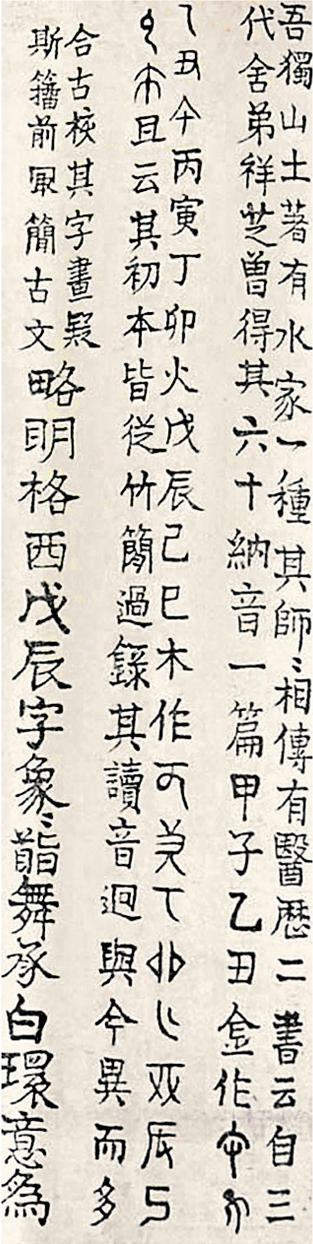 吾獨山土著有水家一種其師〻相傳有醫歷二書云自三
代舍弟祥芝曾得其六十納音一篇甲子乙丑金作
丑今丙寅丁卯火戊辰己巳木作
且云其初本皆從竹簡過錄其讀音迥與今異而多
合古核其字畫疑
斯籀前冣簡古文
略明格西戊辰字象〻舞承白環意為